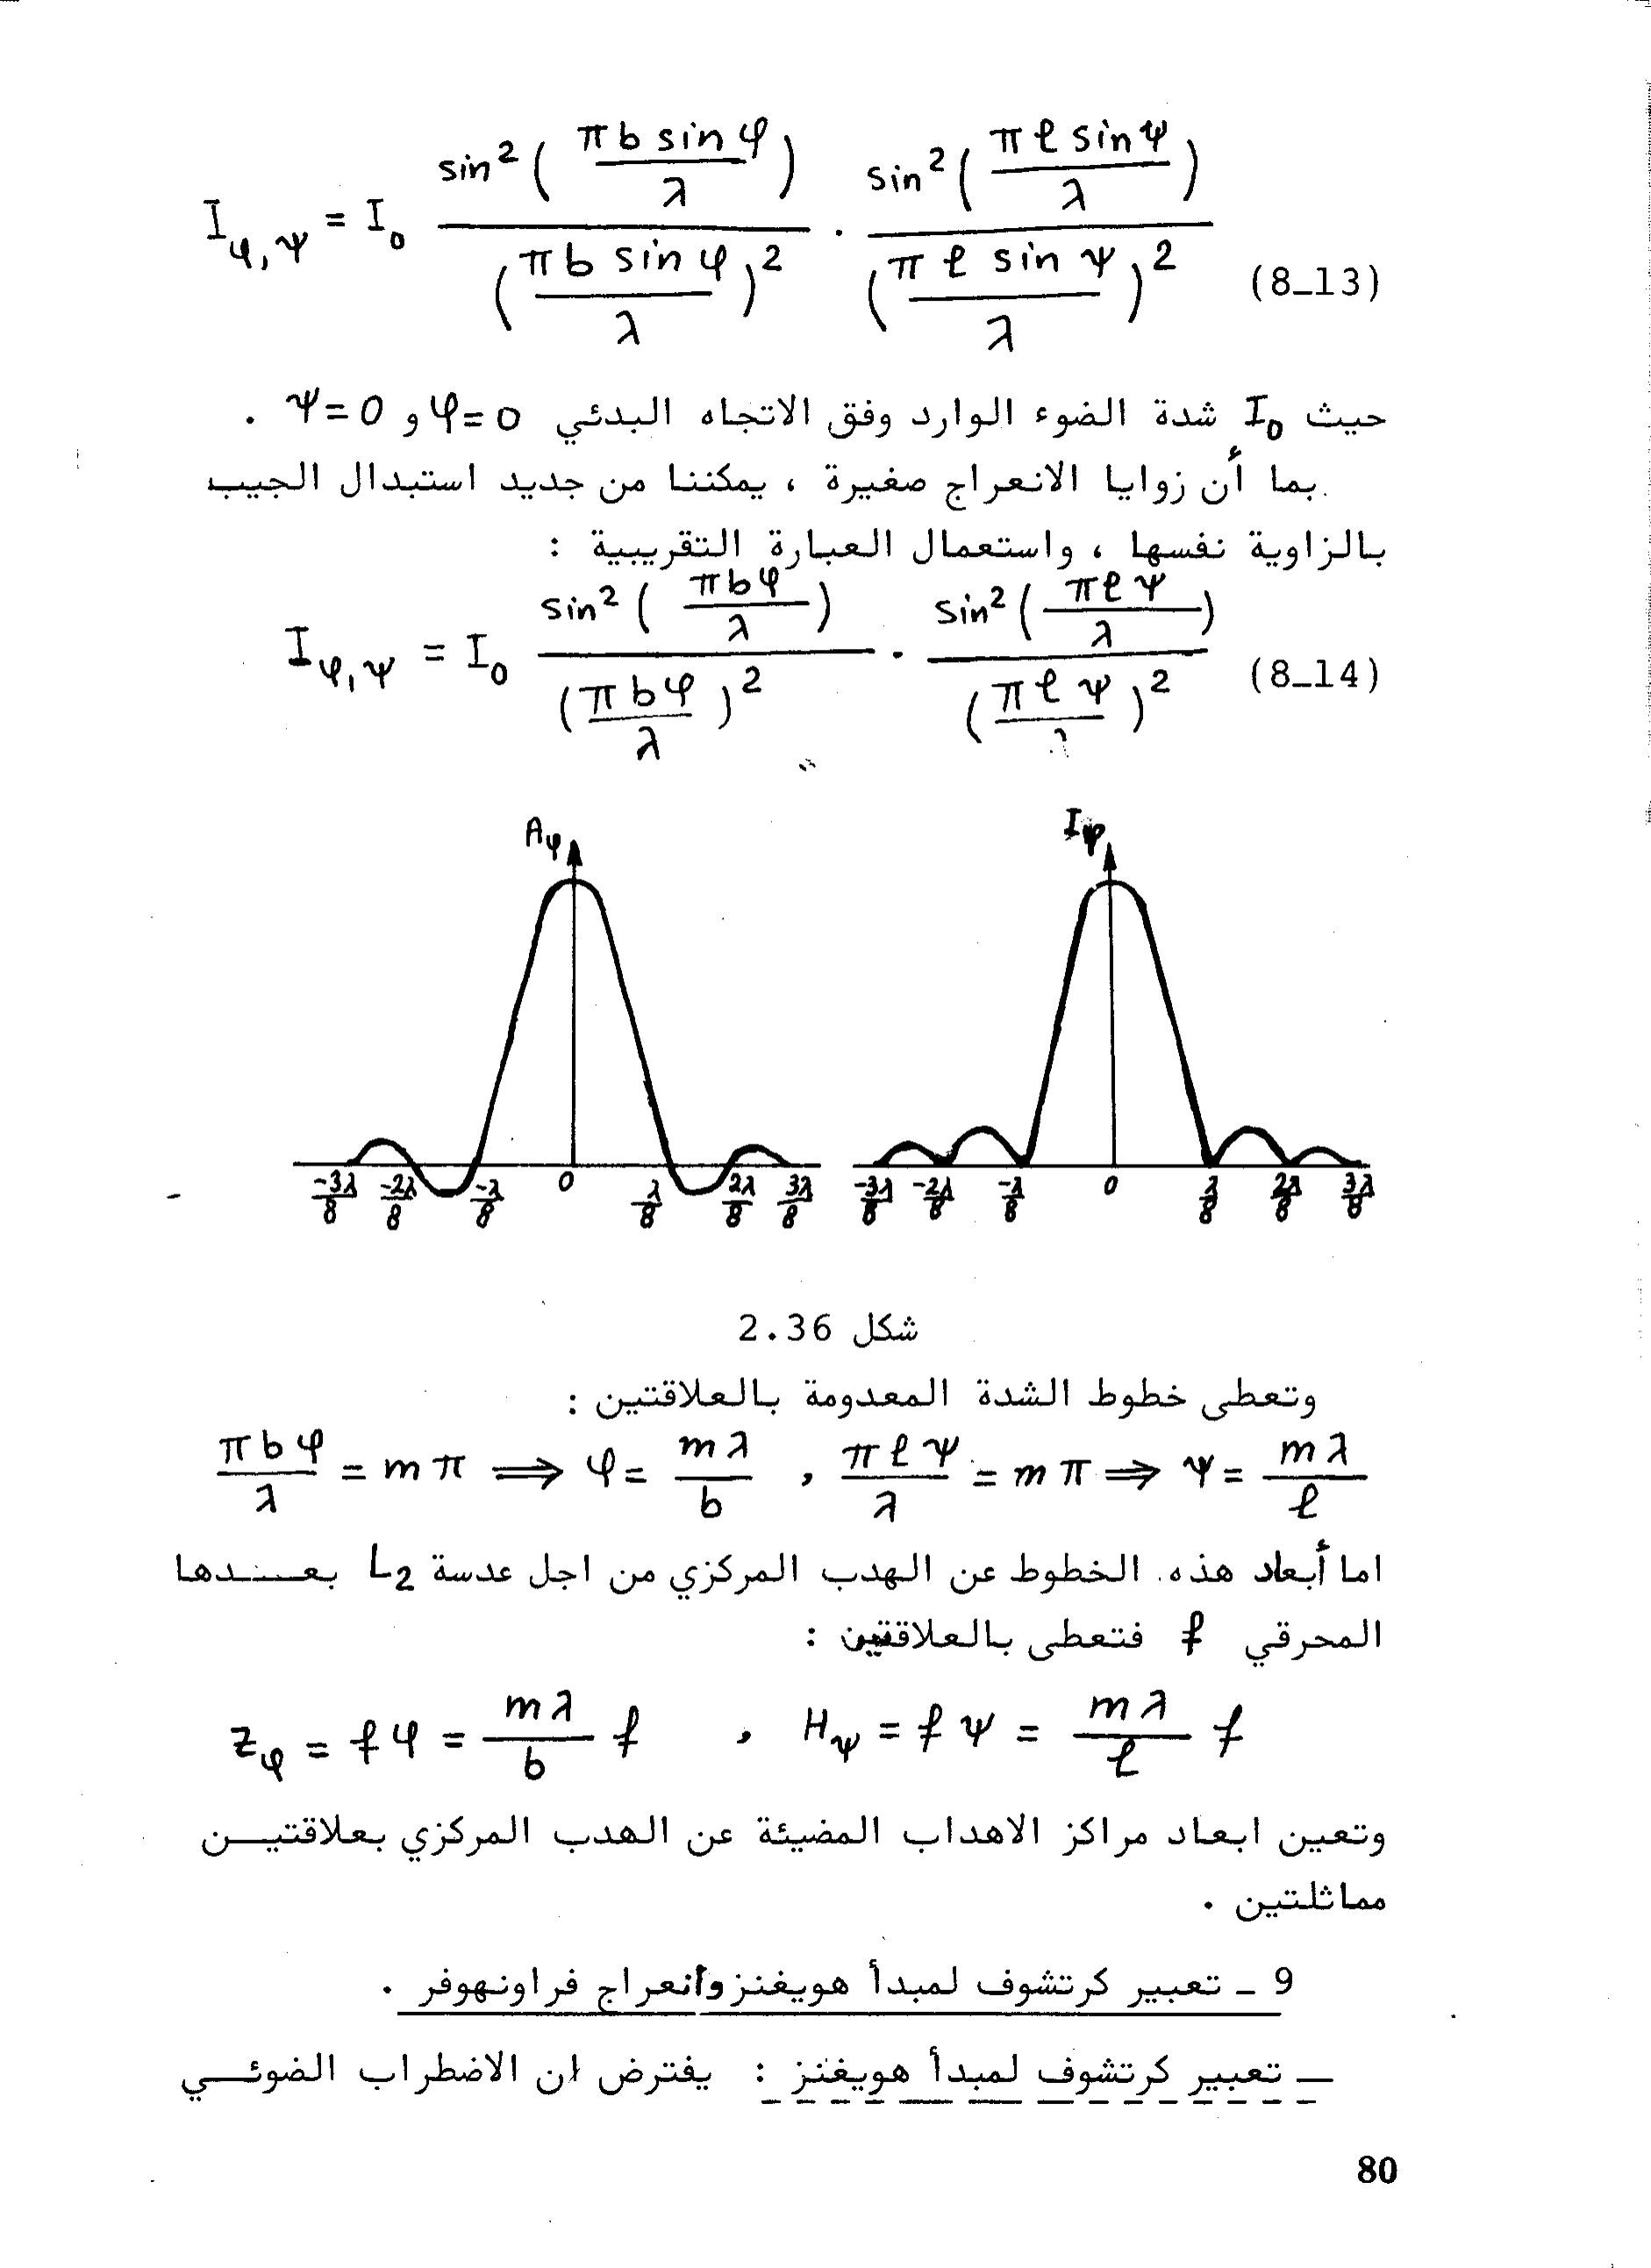 I_{φ,ψ} = I_0 \frac{sin^2(\frac{πb sin φ}{λ})}{(\frac{πb sin φ}{λ})^2} . \frac{sin^2(\frac{πℓ sin ψ}{λ})}{(\frac{πℓ sin ψ}{λ})^2} (8_13)
حيث I_0 شدة الضوء الوارد وفق الاتجاه البدئي φ=0 و ψ=0 .
بما أن زوايا الانعراج صغيرة ، يمكننا من جديد استبدال الجيب
بالزاوية نفسها ، واستعمال العبارة التقريبية :
I_{φ,ψ} = I_0 \frac{sin^2(\frac{πbφ}{λ})}{(\frac{πbφ}{λ})^2} . \frac{sin^2(\frac{πℓψ}{λ})}{(\frac{πℓψ}{λ})^2} (8_14)
A_φ
\frac{-3λ}{8} \frac{-2λ}{8} \frac{-λ}{8} 0 \frac{λ}{8} \frac{2λ}{8} \frac{3λ}{8}
I_φ
\frac{-3λ}{8} \frac{-2λ}{8} \frac{-λ}{8} 0 \frac{λ}{8} \frac{2λ}{8} \frac{3λ}{8}
شكل 2.36
وتعطى خطوط الشدة المعدومة بالعلاقتين :
\frac{πbφ}{λ} = mπ ⟹ φ = \frac{mλ}{b} , \frac{πℓψ}{λ} = mπ ⟹ ψ = \frac{mλ}{ℓ}
اما أبعاد هذه الخطوط عن الهدب المركزي من اجل عدسة L_2 بعدها
المحرقي f فتعطى بالعلاقتين :
Z_φ = fφ = \frac{mλ}{b} f , H_ψ = fψ = \frac{mλ}{ℓ} f
وتعين ابعاد مراكز الاهداب المضيئة عن الهدب المركزي بعلاقتيــن
مماثلتين .
9 _ تعبير كرتشوف لمبدأ هويغنز وانعراج فراونهوفر .
— تعبير كرتشوف لمبدأ هويغنز : يفترض ان الاضطراب الضوئــي
80